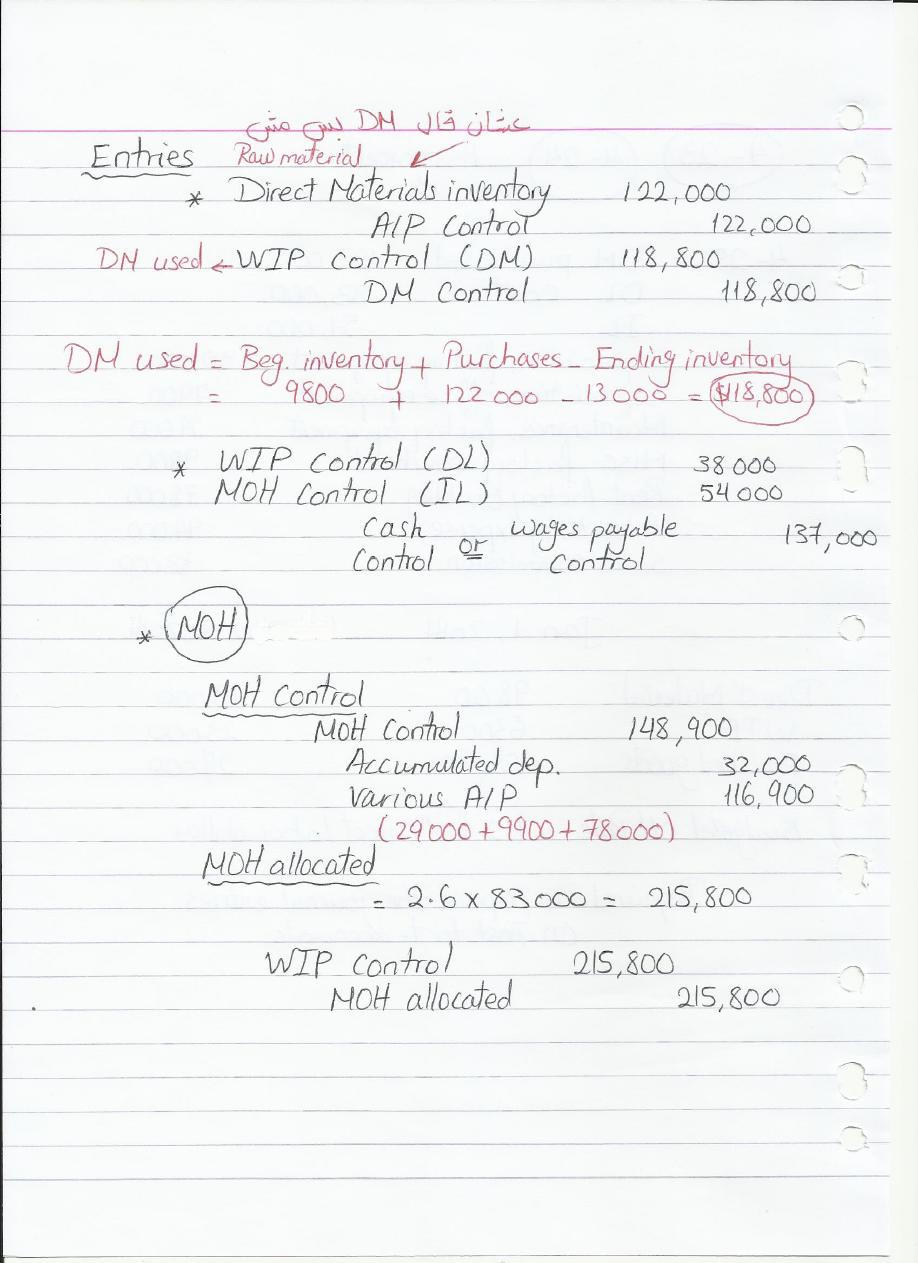 عشان قال DM بس مش
Entries Raw material
* Direct Materials inventory 122,000
A/P Control 122,000
DM used ← WIP Control (DM) 118,800
DM Control 118,800
DM used = Beg. inventory + Purchases - Ending inventory
= 9800 + 122 000 - 13 000 = $118,800
* WIP Control (DL) 38 000
MOH Control (IL) 54 000
Cash Control or wages payable Control 137,000
* MOH
MOH Control
MOH Control 148,900
Accumulated dep. 32,000
Various A/P 116,900
(29 000 + 9900 + 78 000)
MOH allocated
= 2.6 x 83 000 = 215,800
WIP Control 215,800
MOH allocated 215,800